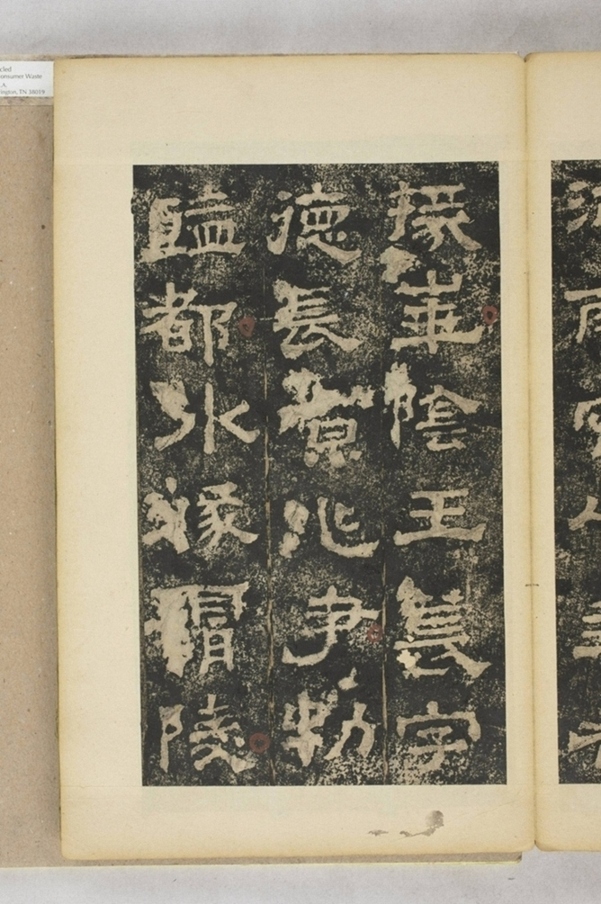 掾華陰王萇字
德長京兆尹勑
監都水掾霸陵
cled
onsumer Waste
.A
ington, TN 38019